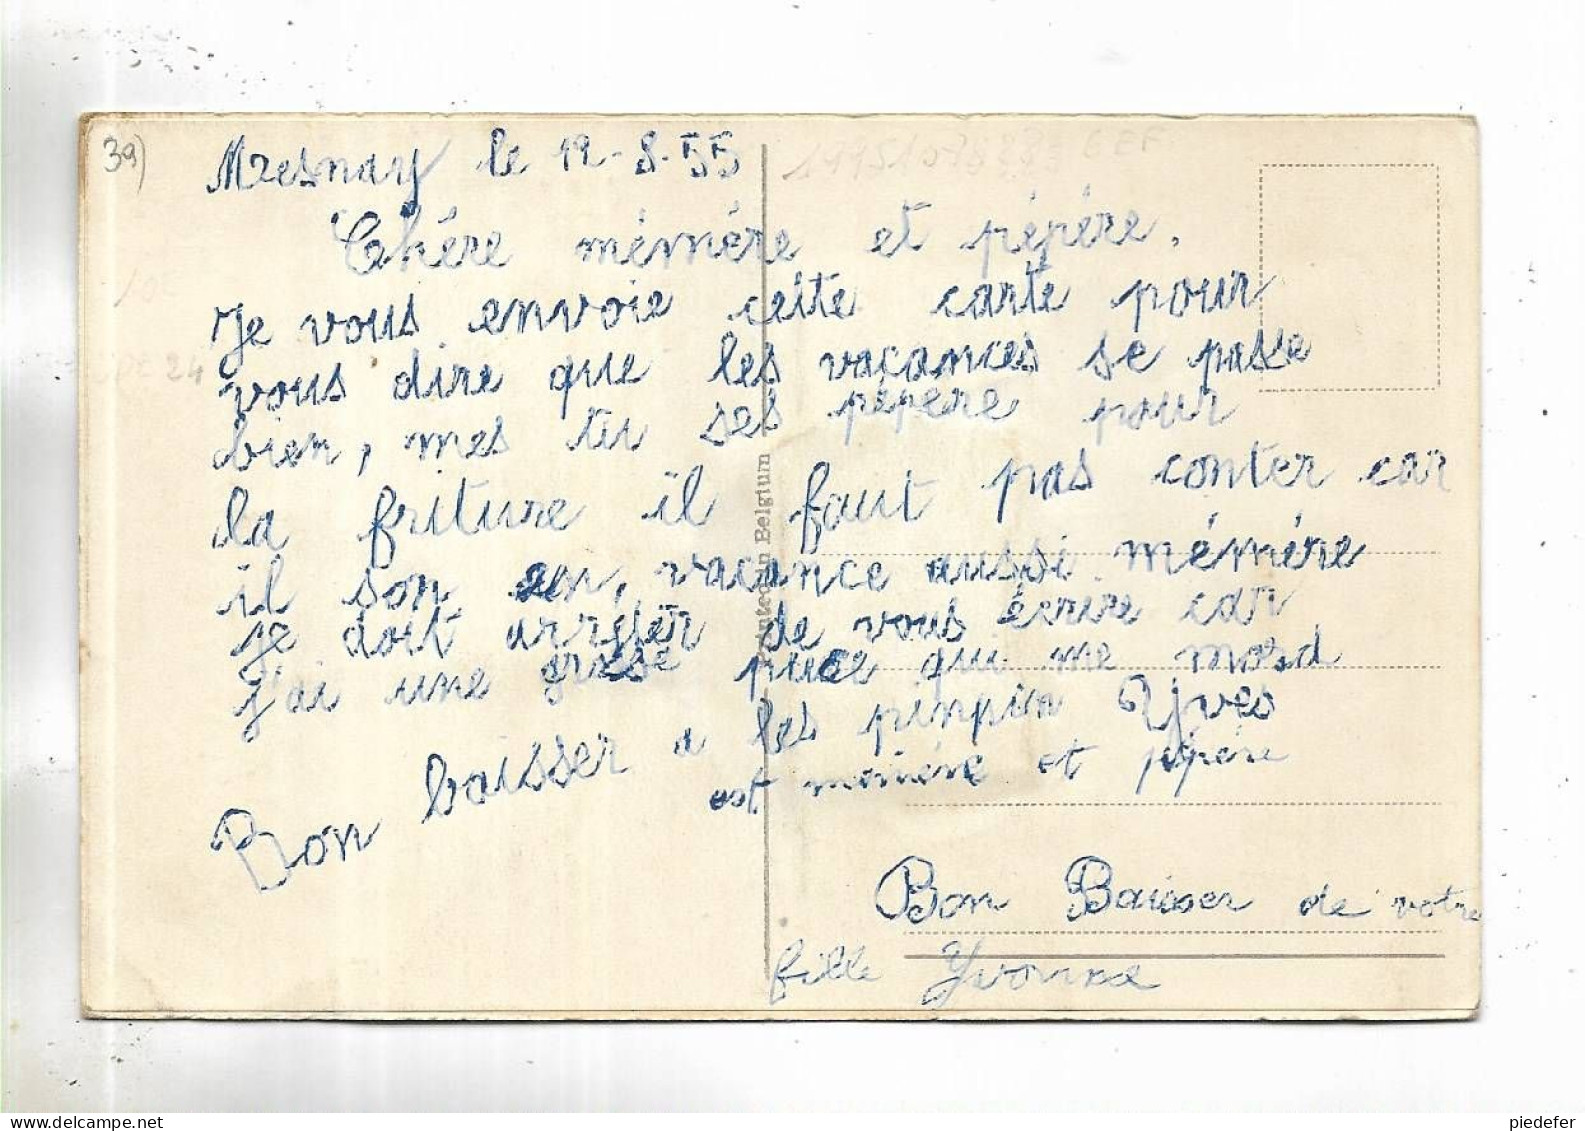 39)
Mresnay le 12-8-55
Chére mémére et pépére.
Je vous envoie cette carte pour
vous dire que les vacances se passe
bien, mes tu ses pépére pour
la friture il faut pas conter car
il son en, vacance aussi. mémére
je doit arrêter de vous écrire car
j'ai une grosse puce qui me mord
Bon baisser a les pinpin Yves
est mémére et pépére
Bon Baisser de votre
fille Yvonne
Printed in Belgium
24
piedefer